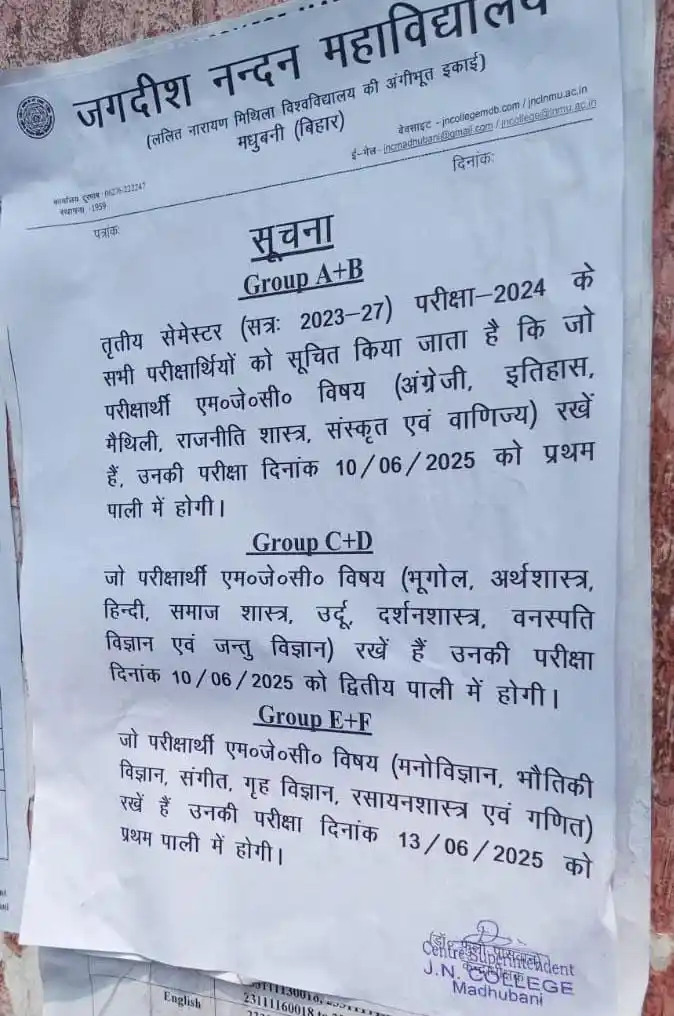 जगदीश नन्दन महाविद्यालय
(ललित नारायण मिथिला विश्वविद्यालय की अंगीभूत इकाई)
मधुबनी (बिहार)
वेबसाइट - jncollegemdb.com / jnclnmu.ac.in
ई-मेल - jncmadhubani@gmail.com / jncollege@lnmu.ac.in
कार्यालय दूरभाष : 06276-222247
स्थापना -1959
पत्रांक:
दिनांक:
सूचना
Group A+B
तृतीय सेमेस्टर (सत्रः 2023-27) परीक्षा-2024 के
सभी परीक्षार्थियों को सूचित किया जाता है कि जो
परीक्षार्थी एम०जे०सी० विषय (अंग्रेजी, इतिहास,
मैथिली, राजनीति शास्त्र, संस्कृत एवं वाणिज्य) रखें
हैं, उनकी परीक्षा दिनांक 10/06/2025 को प्रथम
पाली में होगी।
Group C+D
जो परीक्षार्थी एम०जे०सी० विषय (भूगोल, अर्थशास्त्र,
हिन्दी, समाज शास्त्र, उर्दू, दर्शनशास्त्र, वनस्पति
विज्ञान एवं जन्तु विज्ञान) रखें हैं उनकी परीक्षा
दिनांक 10/06/2025 को द्वितीय पाली में होगी।
Group E+F
जो परीक्षार्थी एम०जे०सी० विषय (मनोविज्ञान, भौतिकी
विज्ञान, संगीत, गृह विज्ञान, रसायनशास्त्र एवं गणित)
रखें हैं उनकी परीक्षा दिनांक 13/06/2025 को
प्रथम पाली में होगी।
Centre Superintendent
J.N. COLLEGE
Madhubani
English
23111160018 to